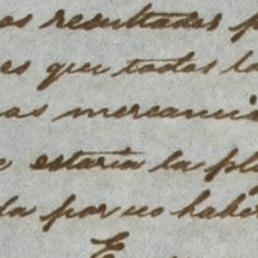 os resultados p
es que todos lo
as mercanci
e estaria la pl
da por no haber
E